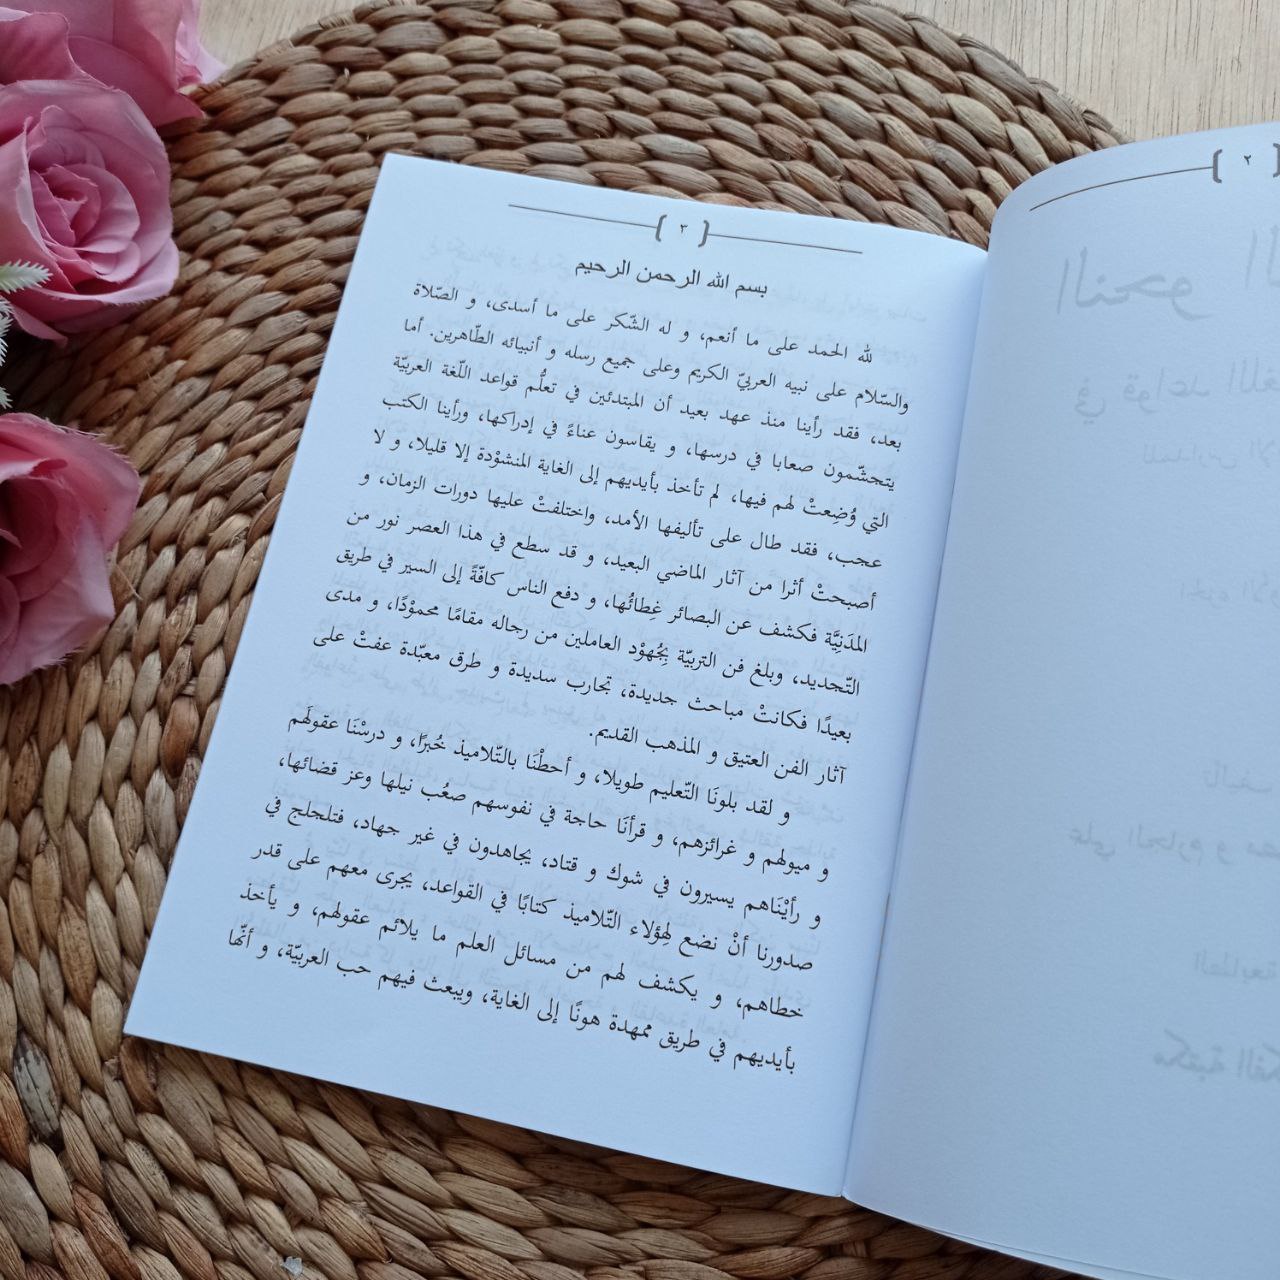 ٣
بسم الله الرحمن الرحيم
لله الحمد على ما أنعم، و له الشّكر على ما أسدى، و الصّلاة
والسّلام على نبيه العربيّ الكريم وعلى جميع رسله و أنبيائه الطّاهرين. أما
بعد، فقد رأينا منذ عهد بعيد أن المبتدئين في تعلُّم قواعد اللّغة العربيّة
يتجشّمون صعابا في درسها، و يقاسون عناءً في إدراكها، ورأينا الكتب
التي وُضِعتْ لهم فيها، لم تأخذ بأيديهم إلى الغاية المنشوْدة إلا قليلا، و لا
عجب، فقد طال على تأليفها الأمد، واختلفتْ عليها دورات الزمان، و
أصبحتْ أثرا من آثار الماضي البعيد، و قد سطع في هذا العصر نور من
المدَنِيَّة فكشف عن البصائر غِطائُها، و دفع الناس كافّةً إلى السير في طريق
التّجديد، وبلغ فن التربيّة بِجُهوْد العاملين من رجاله مقامًا محموْدًا، و مدى
بعيدًا فكانتْ مباحث جديدة، تجارب سديدة و طرق معبّدة عفتْ على
آثار الفن العتيق و المذهب القديم.
و لقد بلونَا التّعليم طويلا، و أحطْنَا بالتّلاميذ خُبرًا، و درسْنَا عقولَهم
و ميولهم و غرائزهم، و قرأنَا حاجة في نفوسهم صعُب نيلها وعز قضائها،
و رأيْنَاهم يسيرون في شوك و قتاد، يجاهدون في غير جهاد، فتلجلج في
صدورنا أنْ نضع لِهؤلاء التّلاميذ كتابًا في القواعد، يجرى معهم على قدر
خطاهم، و يكشف لهم من مسائل العلم ما يلائم عقولهم، و يأخذ
بأيديهم في طريق ممهدة هونًا إلى الغاية، ويبعث فيهم حب العربيّة، و أنّها
٢